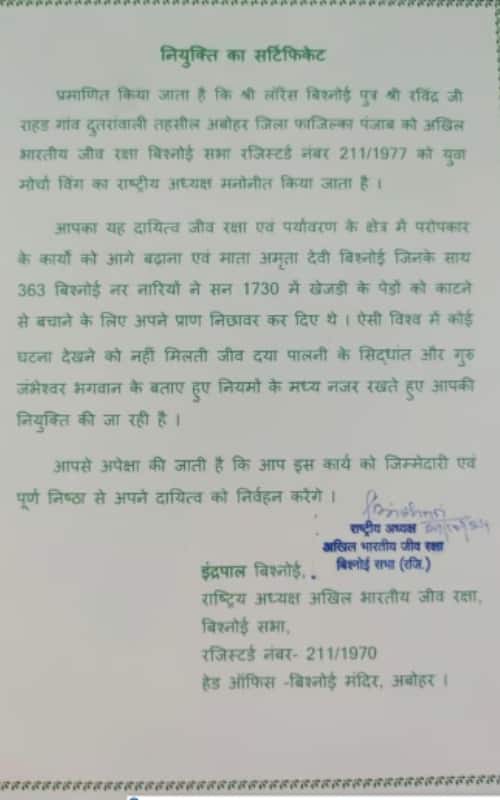 नियुक्ति का सर्टिफिकेट
प्रमाणित किया जाता है कि श्री लॉरेंस बिश्नोई पुत्र श्री रविंद्र जी
राहड गांव दुतरांवाली तहसील अबोहर जिला फाजिल्का पंजाब को अखिल
भारतीय जीव रक्षा बिश्नोई सभा रजिस्टर्ड नंबर 211/1977 को युवा
मोर्चा विंग का राष्ट्रीय अध्यक्ष मनोनीत किया जाता है ।
आपका यह दायित्व जीव रक्षा एवं पर्यावरण के क्षेत्र में परोपकार
के कार्यों को आगे बढ़ाना एवं माता अमृता देवी बिश्नोई जिनके साथ
363 बिश्नोई नर नारियों ने सन 1730 में खेजड़ी के पेड़ों को काटने
से बचाने के लिए अपने प्राण निछावर कर दिए थे । ऐसी विश्व में कोई
घटना देखने को नहीं मिलती जीव दया पालनी के सिद्धांत और गुरु
जंभेश्वर भगवान के बताए हुए नियमों के मध्य नजर रखते हुए आपकी
नियुक्ति की जा रही है ।
आपसे अपेक्षा की जाती है कि आप इस कार्य को जिम्मेदारी एवं
पूर्ण निष्ठा से अपने दायित्व को निर्वहन करेंगे ।
राष्ट्रीय अध्यक्ष
अखिल भारतीय जीव रक्षा
बिश्नोई सभा (रजि.)
इंद्रपाल बिश्नोई,
राष्ट्रिय अध्यक्ष अखिल भारतीय जीव रक्षा,
बिश्नोई सभा,
रजिस्टर्ड नंबर- 211/1970
हेड ऑफिस -बिश्नोई मंदिर, अबोहर ।